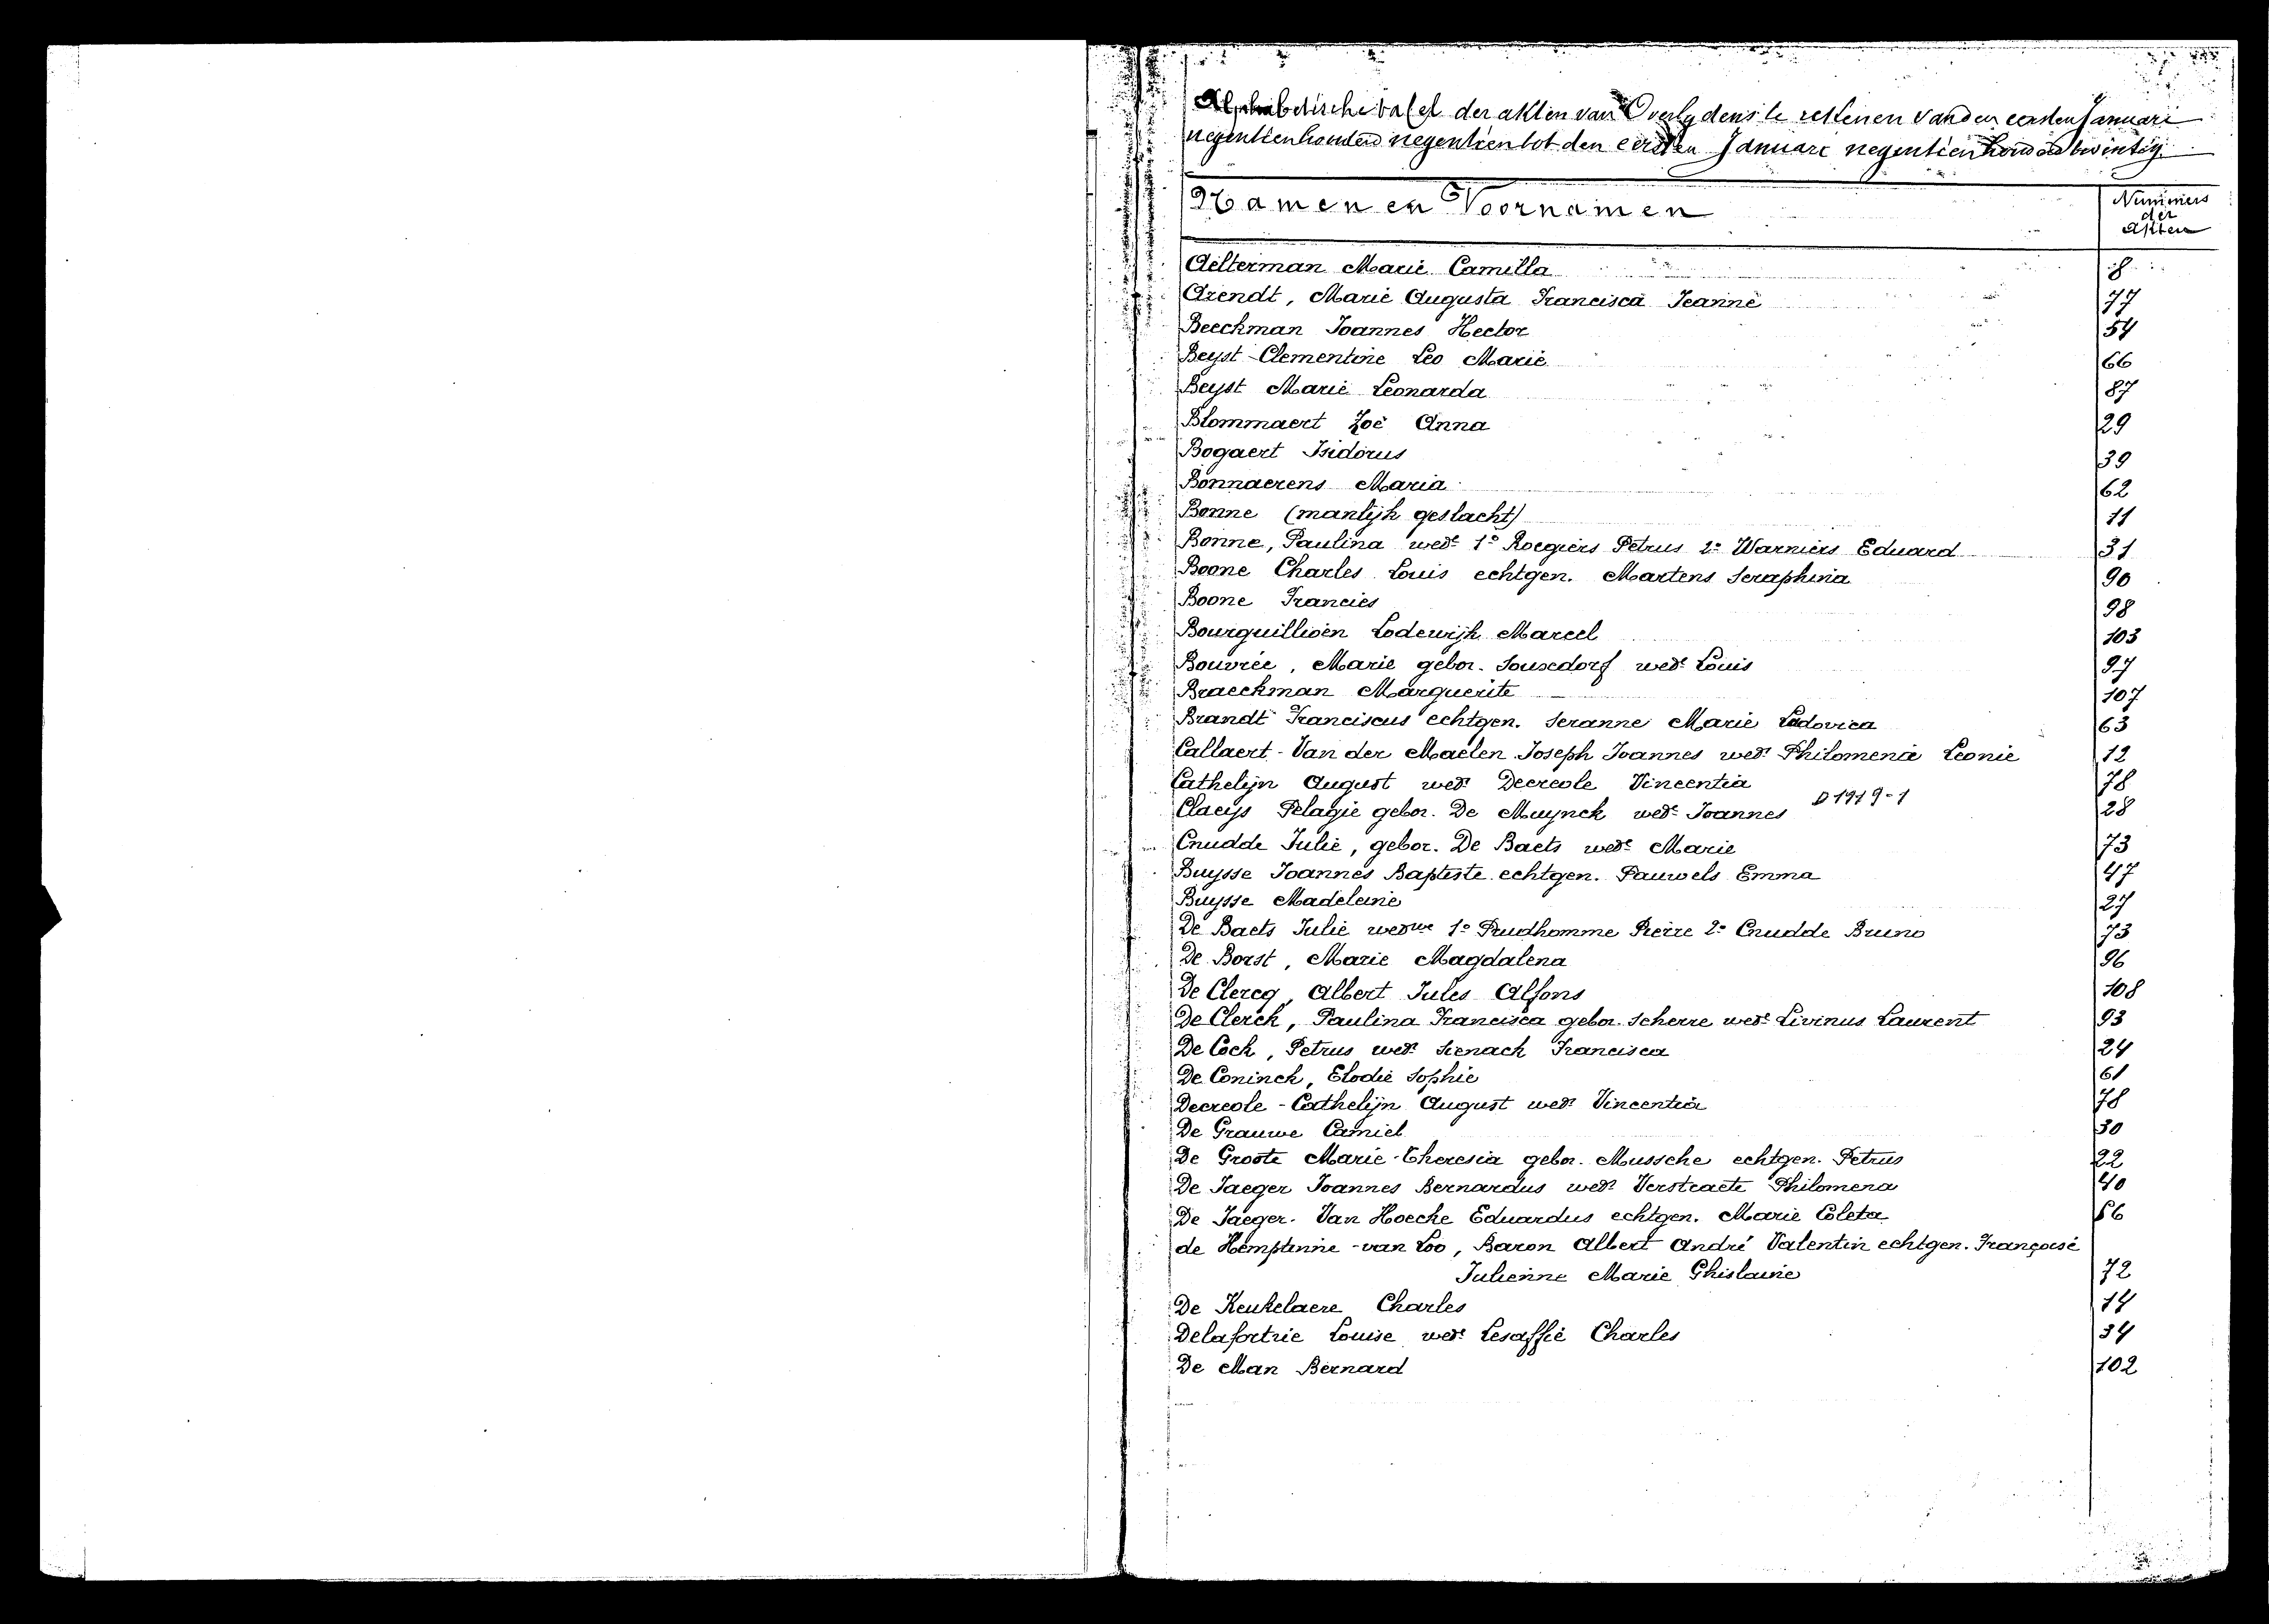 Alphabetische tafel der akten van Overlydens te rekenen van den eersten Januari
negentienhonderd negentien tot den eersten Januari negentienhonderd twintig.
Namen en Voornamen
Nummers
der
Akten
Aelterman Marie Camilla 8
Arendt, Marie Augusta Francisca Jeanne 77
Beeckman Joannes Hector 54
Beyst Clementine Leo Marie 66
Beyst Marie Leonarda 87
Blommaert Zoë Anna 29
Bogaert Isidorus 39
Bonnaerens Maria 62
Bonne (manlijk geslacht) 11
Bonne, Paulina wede 1º Roegiers Petrus 2º Warniers Eduard 31
Boone Charles Louis echtgen. Martens Seraphina 90
Boone Francies 98
Bourguillioen Lodewijk Marcel 103
Bouvrée, Marie gebor. Souxdorf wede Louis 97
Braeckman Marguerite 107
Brandt Franciscus echtgen. Seranne Marie Ludovica 63
Callaert - Van der Maelen Joseph Joannes wedr Philomenie Leonie 12
Cathelijn August wedr Decreole Vincentia 78
D 1919-1
Claeys Pelagie gebor. De Muynck wede Joannes 28
Cnudde Julie, gebor. De Baets wede Marie 73
Buysse Joannes Baptiste echtgen. Pauwels Emma 47
Buysse Madeleine 27
De Baets Julie weduwe 1º Prudhomme Pierre 2º Cnudde Bruno 73
De Borst, Marie Magdalena 96
De Clercq, Albert Jules Alfons 108
De Clerck, Paulina Francisca gebor. Scherre wede Livinus Laurent 93
De Cock, Petrus wedr Sienach Francisca 24
De Coninck, Elodie Sophie 61
Decreole - Cathelijn August wedr Vincentia 78
De Grauwe Camiel 30
De Groote Marie-Theresia gebor. Mussche echtgen. Petrus 22
De Jaeger Joannes Bernardus wedr Verstraete Philomena 40
De Jaeger - Van Hoecke Eduardus echtgen. Marie Coleta 56
de Hemptinne - van Loo, Baron Albert André Valentin echtgen. Françoise
Julienne Marie Ghislaine 72
De Keukelaere Charles 14
Delafortrie Louise wede Lesaffie Charles 34
De Man Bernard 102